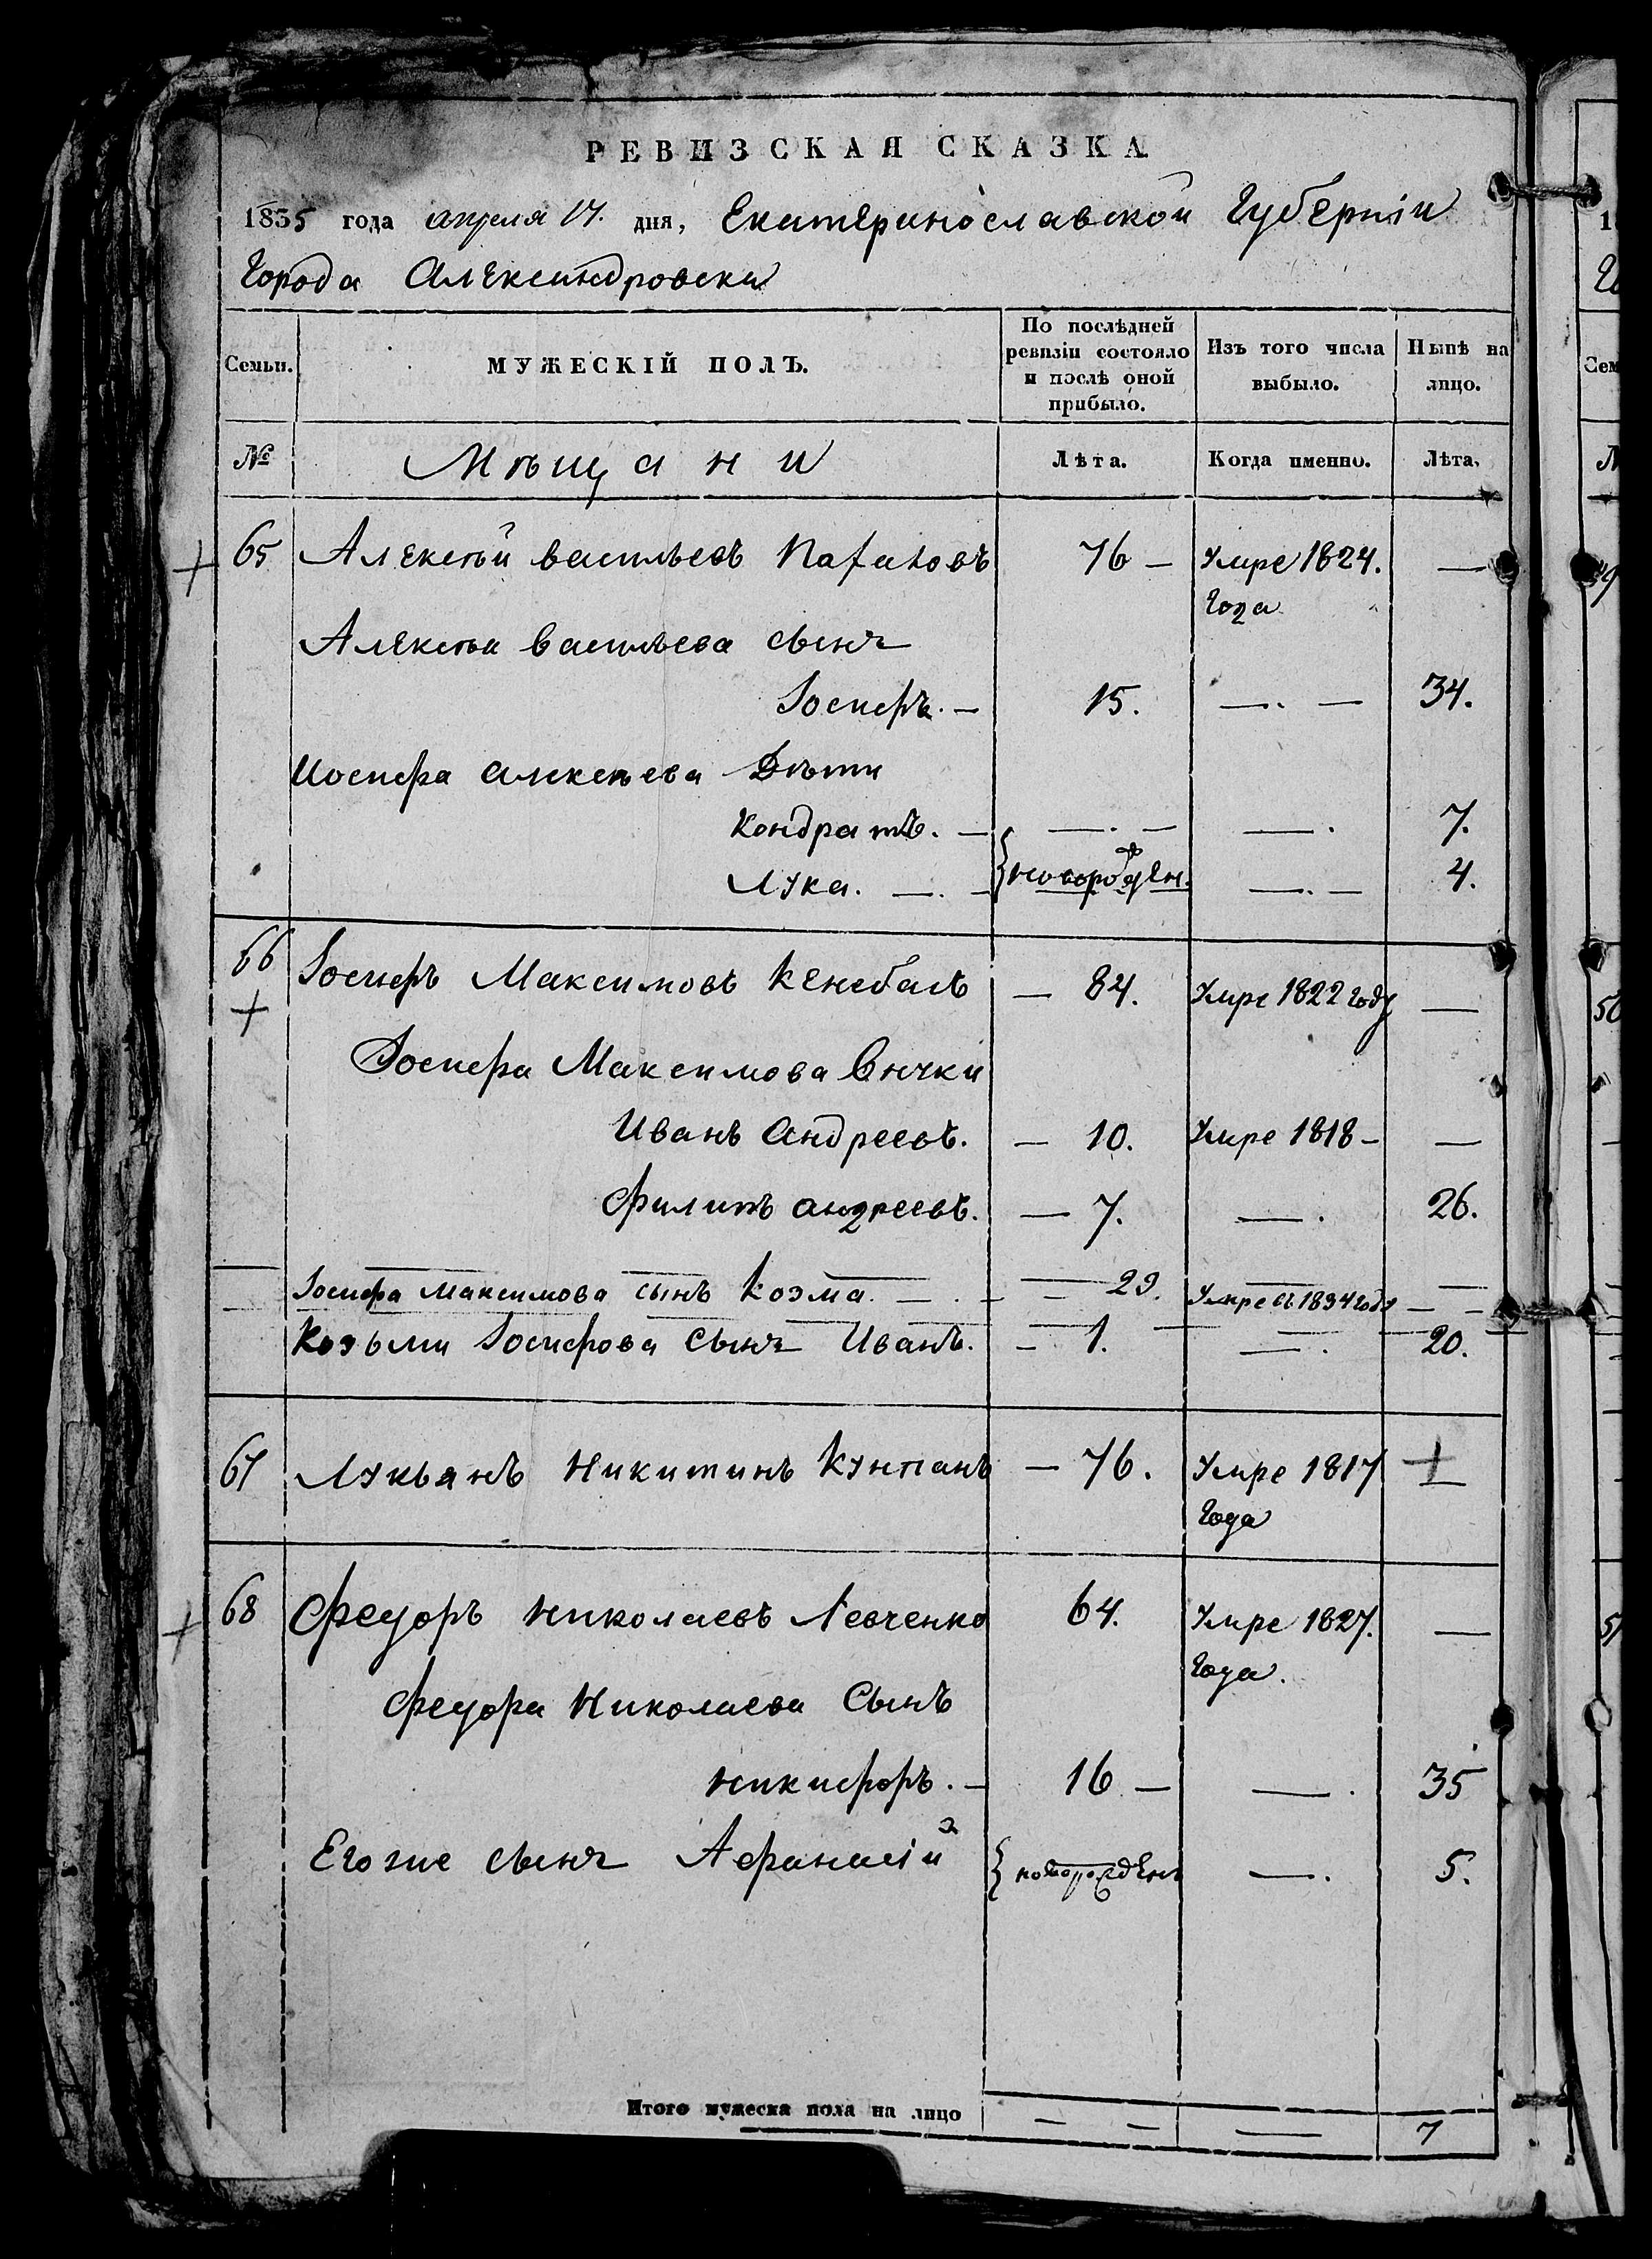 РЕВИЗСКАЯ СКАЗКА
1835 года апреля 17. дня, Екатеринославской Губерніи
Города Александровска
Семьи. МУЖЕСКІЙ ПОЛЪ. По послѣдней ревизіи состояло и послѣ оной прибыло. Изъ того числа выбыло. Нынѣ на лицо.
№ Мѣщани Лѣта. Когда именно. Лѣта.
65 Алексѣй васильевъ 76 — Умре 1824. —
Года
Алексѣя васильева сынъ
Іосифъ. — 15. —. — 34.
Иосифа алексѣева Дѣти
Кондратъ. — —. — —. 7.
Лука. —. — новорожден. —. — 4.
66 Іосифъ Максимовъ Кенебасъ — 84. Умре 1822 году —
Іосифа Максимова внуки
Иванъ андреевъ. — 10. Умре 1818 — —
Филипъ андреевъ. — 7. —. 26.
Іосифа Максимова сынъ Козма. —. — 29. Умре въ 1834 году —
Козьми Іосифова сынъ Иванъ. — 1. —. 20.
67 Лукьянъ Никитинъ Кунпанъ — 76. Умре 1817 —
Года
68 Федоръ Николаевъ Левченко 64. Умре 1827. —
Года.
Федора Николаева Сынъ
Никифоръ. — 16 — —. 35
Его же сынъ Афанасій новорожденъ —. 5.
Итого мужеска пола на лицо — — — 7